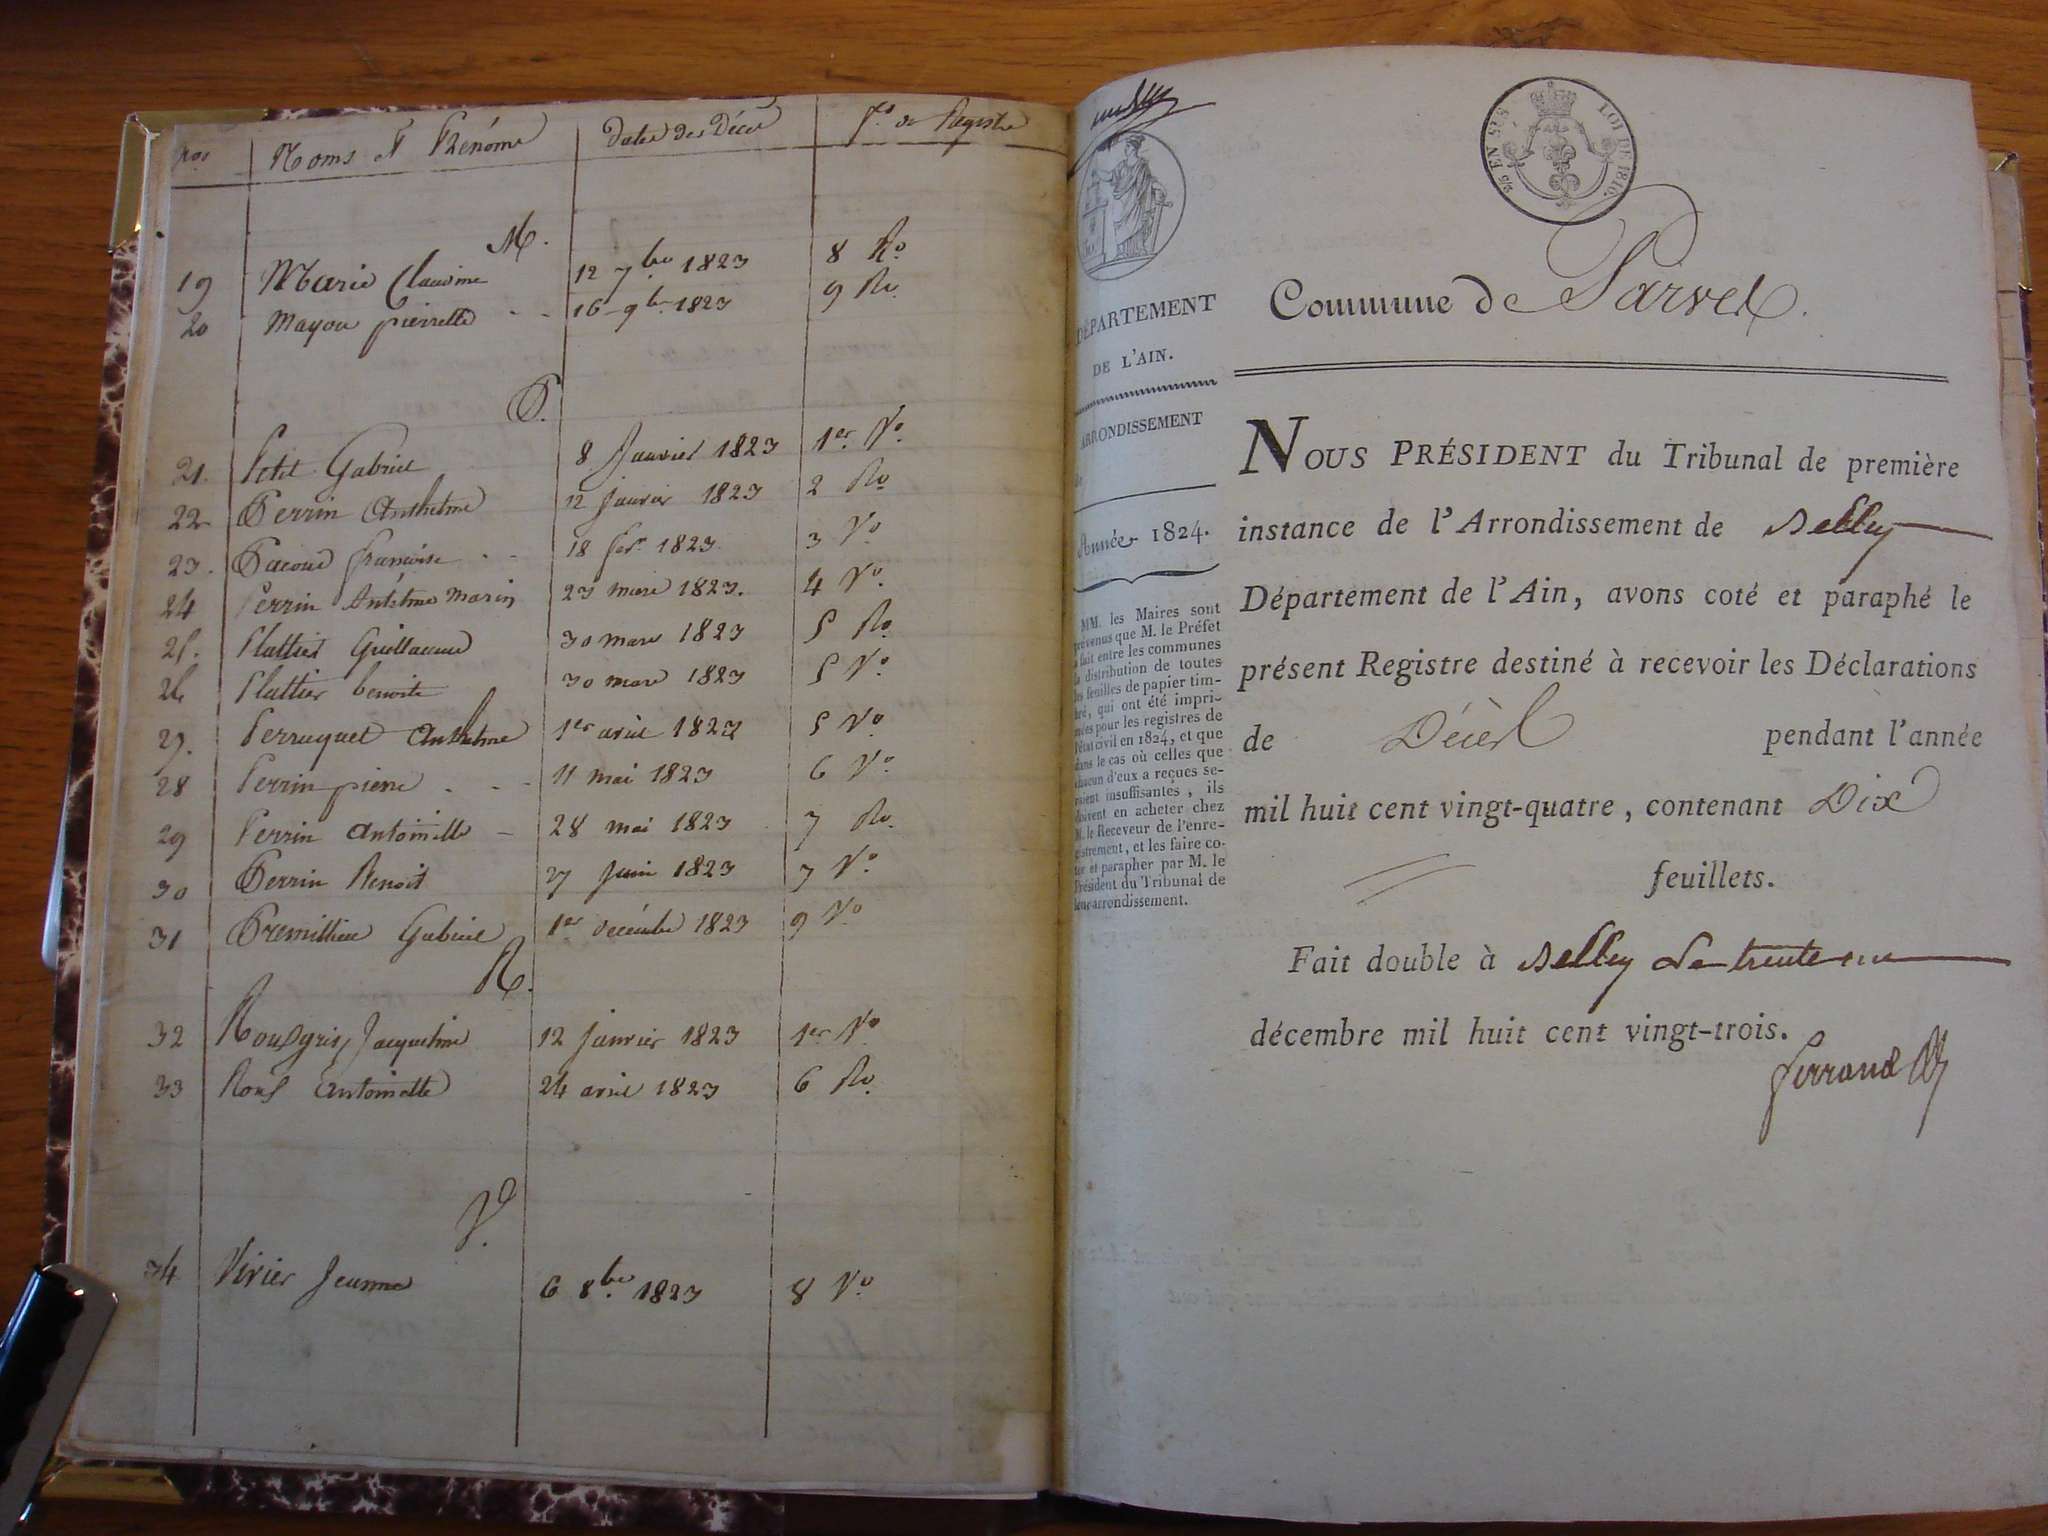 Nos Noms et Prénoms Dates des Décès fo. du Registre
M.
19 Marie Claudine 12 7bre 1823 8 Ro
20 Mayou pierrette 16 9b. 1823 9 Ro
P.
21. Petit Gabriel 8 Janvier 1823 1er Vo.
22 Perrin Anthelme 12 janvier 1823 2 Ro
23. françoise 18 fer. 1823 3 Vo.
24 Perrin Antelme Marin 23 mars 1823. 4 Vo.
25. Plattier Guillaume 30 mars 1823 5 Ro
26 Plattier benoite 30 mars 1823 5 Vo.
27. Perruquet Anthelme 1er avril 1823 5 Vo
28 Perrin pierre 11 mai 1823 6 Vo.
29 Perrin antoinette 28 mai 1823 7 Ro.
30 Perrin Benoit 27 juin 1823 7 Vo.
31 Premillieu Gabriel 1er décembre 1823 9 Vo
R.
32 Jacqueline 12 janvier 1823 1er Vo
33 Rous antoinette 24 avril 1823 6 Ro.
V.
34 Vivier Jeanne 6 8bre 1823 8 Vo.
25 EN SUS LOI DE 1816.
Commune de Parves.
DÉPARTEMENT
DE L'AIN.
ARRONDISSEMENT
de
Année 1824.
MM. les Maires sont
prévenus que M. le Préfet
a fait entre les communes
la distribution de toutes
les feuilles de papier tim-
bré, qui ont été impri-
mées pour les registres de
l'état civil en 1824, et que
dans le cas où celles que
chacun d'eux a reçues se-
roient insuffisantes, ils
doivent en acheter chez
M. le Receveur de l'enre-
gistrement, et les faire co-
ter et parapher par M. le
Président du Tribunal de
leur arrondissement.
NOUS PRÉSIDENT du Tribunal de première
instance de l'Arrondissement de Belley
Département de l'Ain, avons coté et paraphé le
présent Registre destiné à recevoir les Déclarations
de Décès pendant l'année
mil huit cent vingt-quatre, contenant Dix
feuillets.
Fait double à Belley le trente un
décembre mil huit cent vingt-trois.
Ferrand